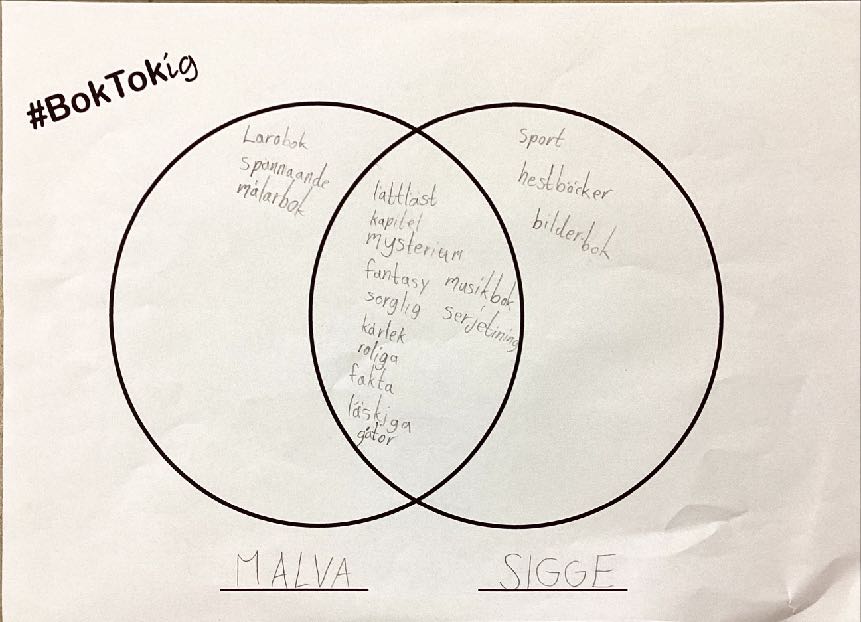 #BokTokig
Larobok
spannaande
målarbok
lättläst
kapitel
mysterium
fantasy musikbok
sorglig serjetining
kärlek
roliga
fakta
läskiga
gåtor
sport
hestböcker
bilderbok
MALVA
SIGGE